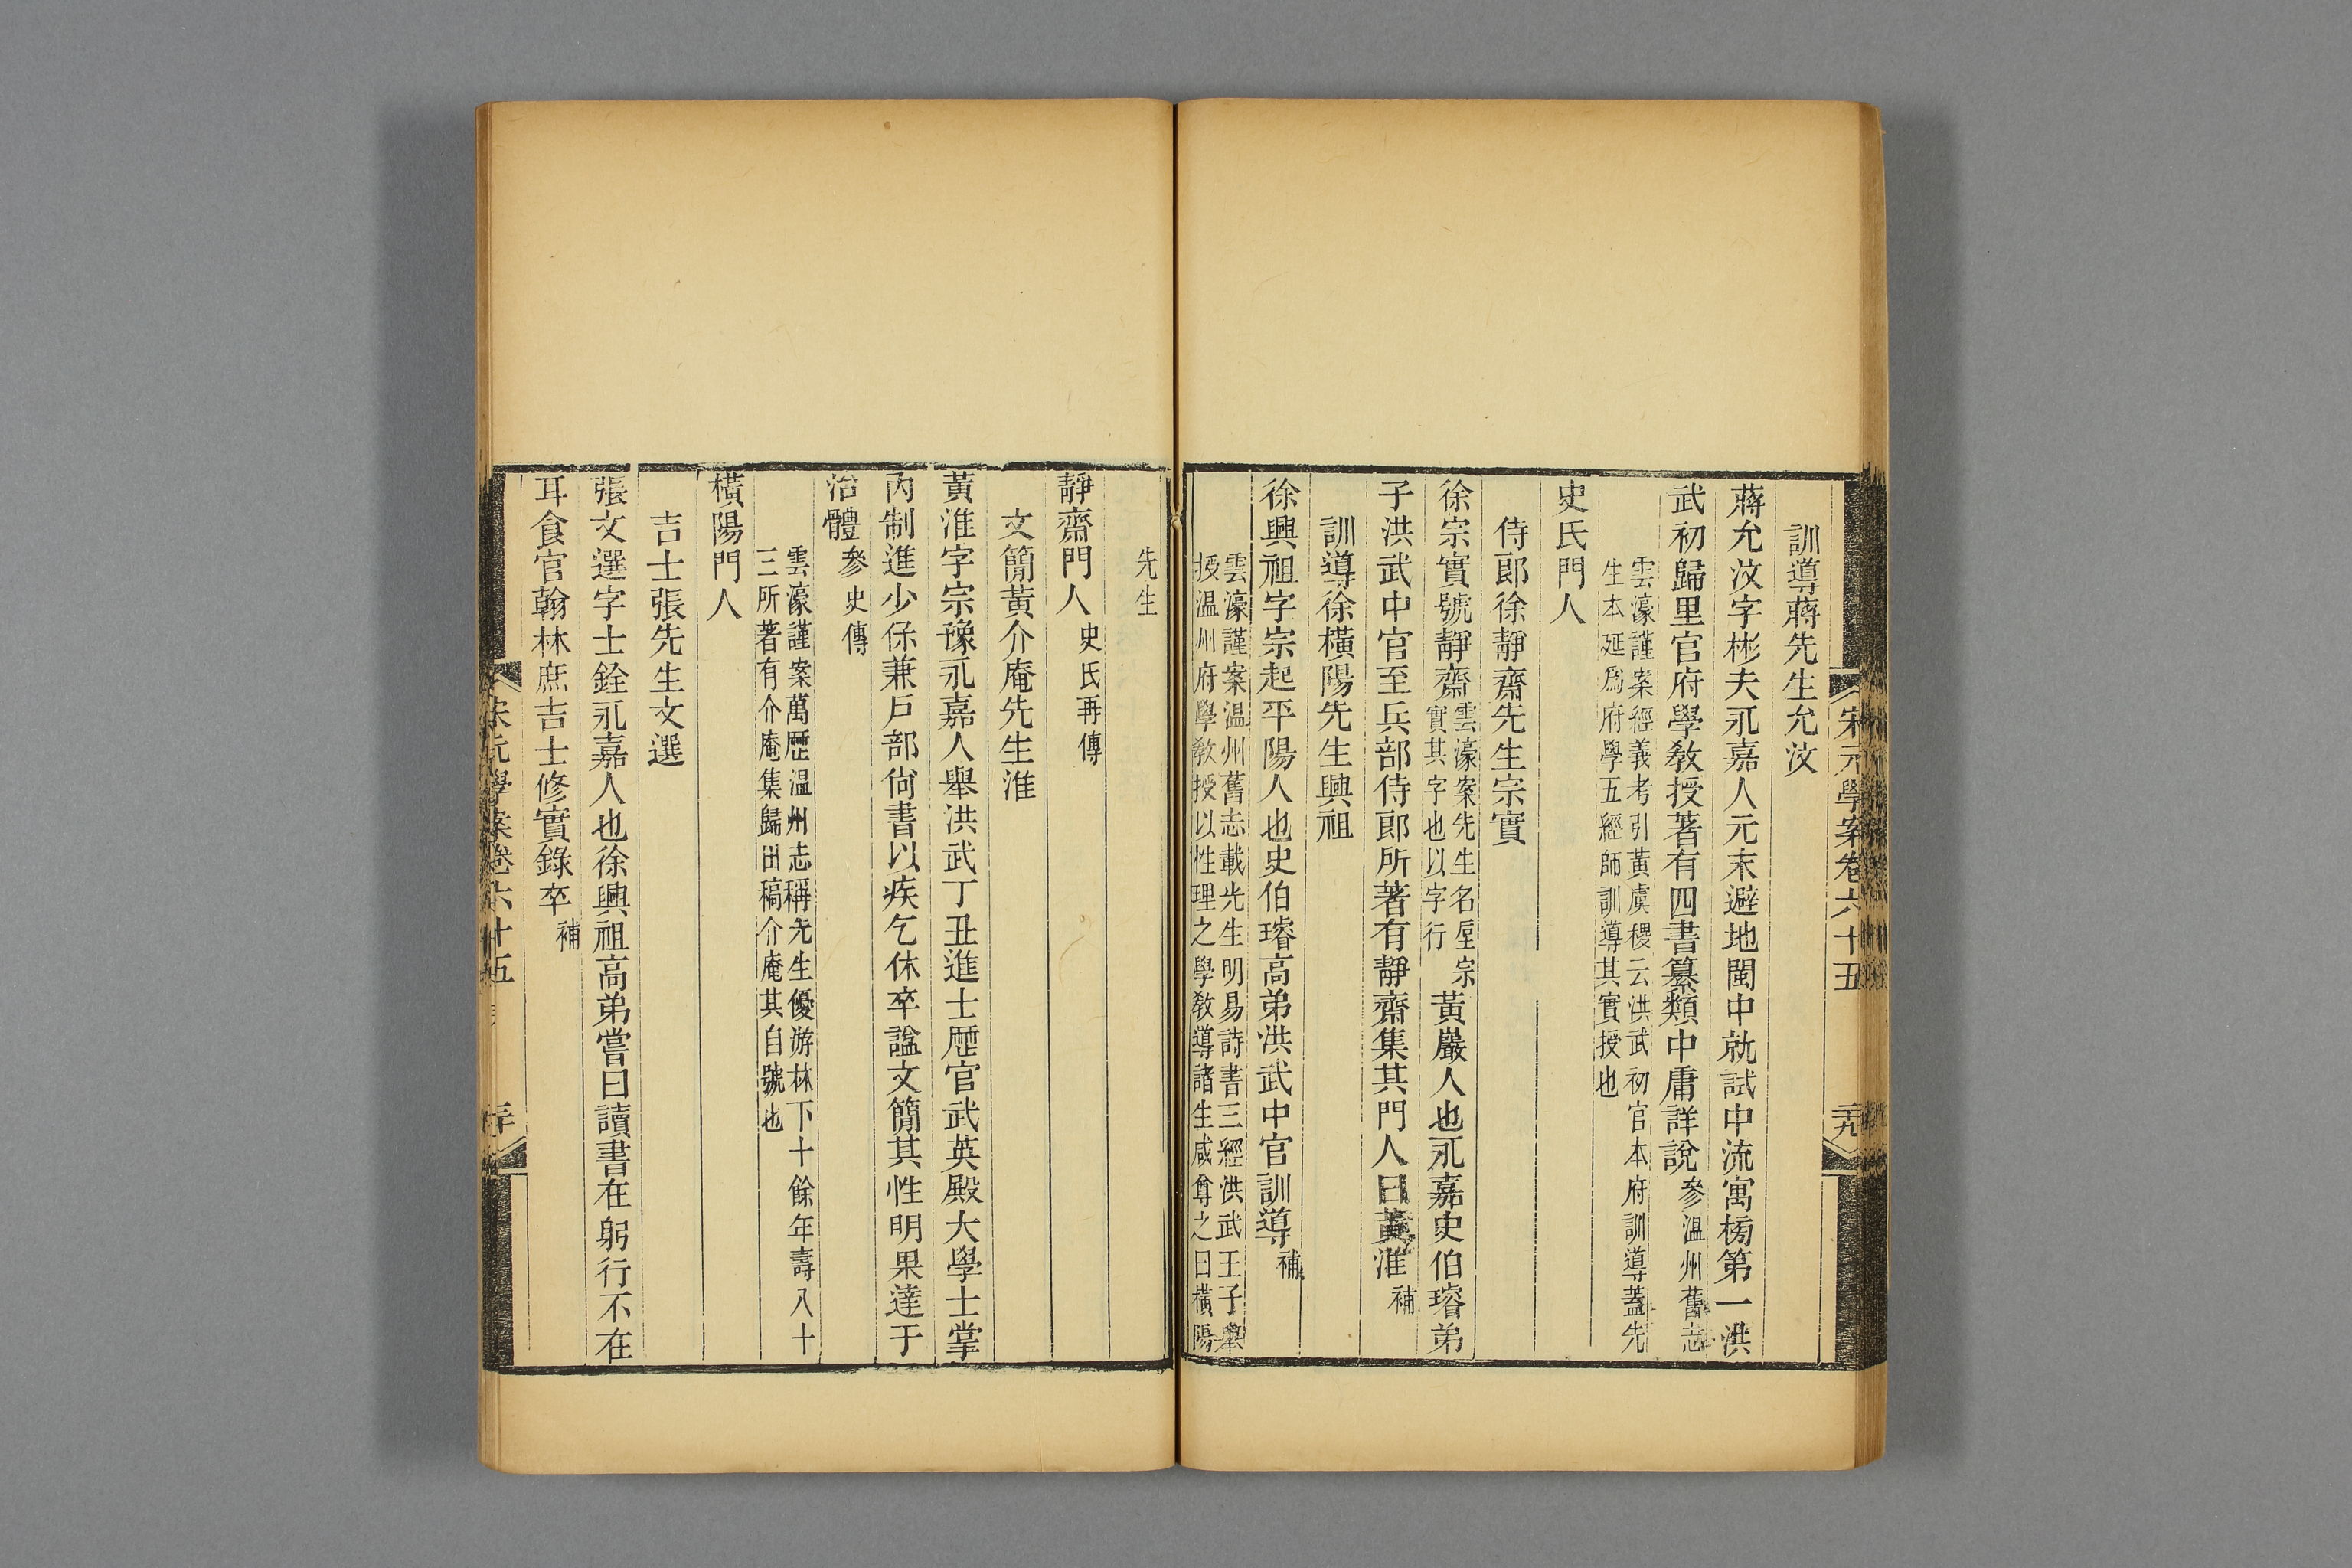 宋元學案卷六十五
二十九
訓導蔣先生允汶
蔣允汶字彬夫永嘉人元末避地閩中就試中流寓榜第一洪
武初歸里官府學教授著有四書纂類中庸詳說參溫州舊志
雲濠謹案經義考引黃虞稷云洪武初官本府訓導蓋先
生本延爲府學五經師訓導其實授也
史氏門人
侍郎徐靜齋先生宗實
徐宗實號靜齋雲濠案先生名垕宗實其字也以字行黃巖人也永嘉史伯璿弟
子洪武中官至兵部侍郎所著有靜齋集其門人曰黃淮補
訓導徐橫陽先生興祖
徐興祖字宗起平陽人也史伯璿高弟洪武中官訓導補
雲濠謹案溫州舊志載先生明易詩書三經洪武王子舉
授溫州府學教授以性理之學教導諸生咸尊之曰橫陽
先生
靜齋門人史氏再傳
文簡黃介庵先生淮
黃淮字宗豫永嘉人舉洪武丁丑進士歷官武英殿大學士掌
內制進少保兼戶部尙書以疾乞休卒諡文簡其性明果達于
治體參史傳
雲濠謹案萬歷溫州志稱先生優游林下十餘年壽八十
三所著有介庵集歸田稿介庵其自號也
橫陽門人
吉士張先生文選
張文選字士銓永嘉人也徐興祖高弟嘗曰讀書在躬行不在
耳食官翰林庶吉士修實錄卒補
宋元學案卷六十五
三十